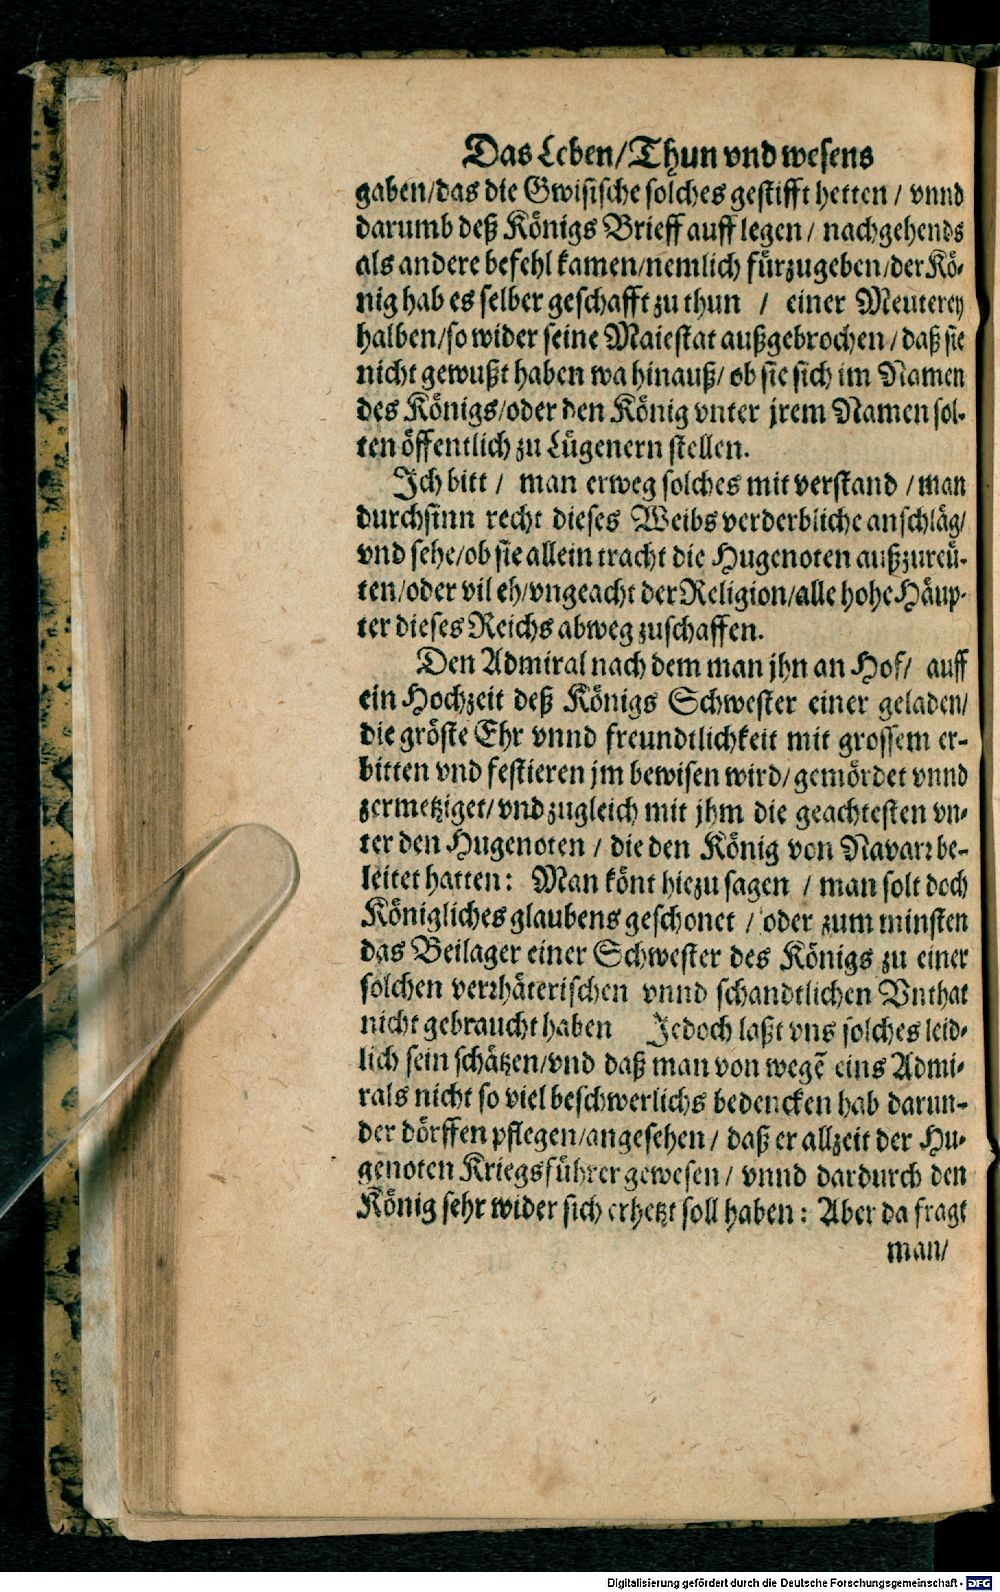 Das Leben/Thun vnd wesens
gaben/das die Gwisische solches gestifft hetten / vnnd
darumb deß Königs Brieff auff legen / nachgehends
als andere befehl kamen/nemlich fürzugeben/der Kö-
nig hab es selber geschafft zu thun / einer Meuterey
halben/so wider seine Maiestat außgebrochen / daß sie
nicht gewußt haben wa hinauß/ ob sie sich im Namen
des Königs/oder den König vnter jrem Namen sol-
ten öffentlich zu Lügenern stellen.
Ich bitt / man erweg solches mit verstand / man
durchsinn recht dieses Weibs verderbliche anschläg/
vnd sehe/ob sie allein tracht die Hugenoten außzureü-
ten/oder vil eh/vngeacht der Religion/alle hohe Häup-
ter dieses Reichs abweg zuschaffen.
Den Admiral nach dem man jhn an Hof/ auff
ein Hochzeit deß Königs Schwester einer geladen/
die gröste Ehr vnnd freundtlichkeit mit grossem er-
bitten vnd festieren jm bewisen wird/gemördet vnnd
zermetziget/ vnd zugleich mit jhm die geachtesten vn-
ter den Hugenoten / die den König von Navarr be-
leitet hatten: Man könt hiezu sagen / man solt doch
Königliches glaubens geschonet / oder zum minsten
das Beilager einer Schwester des Königs zu einer
solchen verrhäterischen vnnd schandtlichen Vnthat
nicht gebraucht haben Jedoch laßt vns solches leid-
lich sein schätzen/vnd daß man von wegē eins Admi-
rals nicht so viel beschwerlichs bedencken hab darun-
der dörffen pflegen/angesehen / daß er allzeit der Hu-
genoten Kriegsführer gewesen / vnnd dardurch den
König sehr wider sich erhetzt soll haben: Aber da fragt
man/
Digitalisierung gefördert durch die Deutsche Forschungsgemeinschaft - DFG